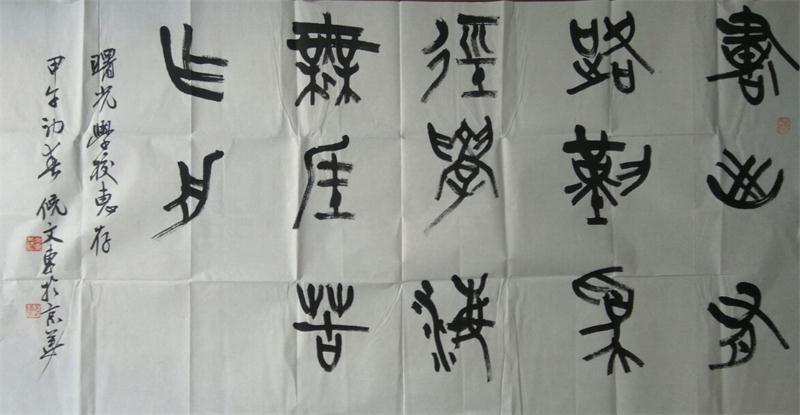 書山有
路勤為
徑學海
無厓苦
乍舟
曙光學校惠存
甲午初春 倪文東於京華